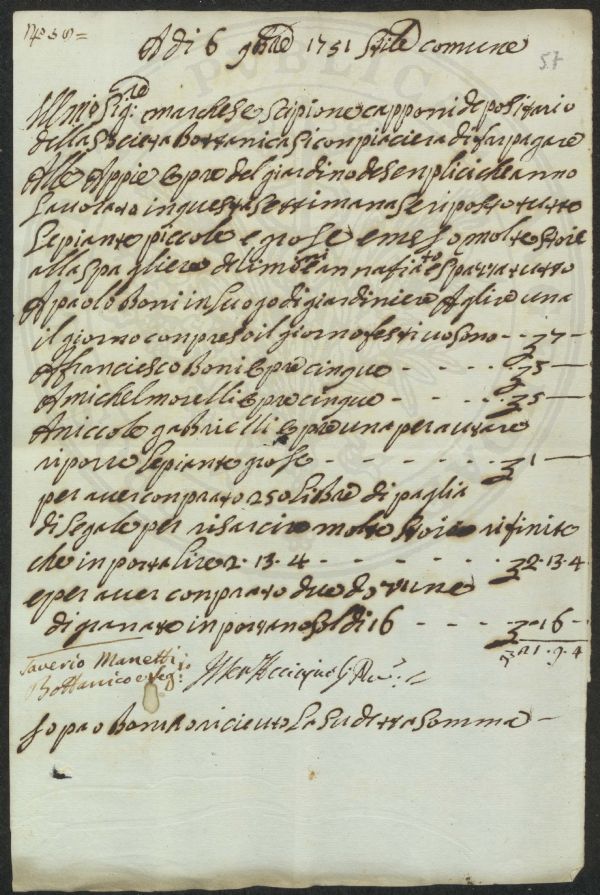 No 58=
A di 6 9bre 1751 Stile comune
57
Illmo Sigre: marchese Scipione capponi depositario
della Societa Bottanica si conpiacera di far pagare
Alle Appie Opre del giardino de Senplici che anno
Lavorato in questa Settimana se riposto tutte
Le piante piccole e grose e meso molte stoie
alla Spagliera de limoni annafiato e Spazzato tutto
A paolo Boni in luogo di giardiniere A lire una
il giorno conpreso il giorno festivo sono - - 37 —
A francesco Boni Opre cinque - - - - 35 —
A michel morelli Opre cinque - - - - 35 —
A niccolo gabrielli Opre una per autare
riporre le piante grose - - - - - - 31 —
per aver conprato 250 libre di paglia
di Segale per risarcire molte Stoie rifinite
che inporta lire 2.13.4 - - - - - 32.13.4
e per aver conprato due dozzine
di granate inportano Soldi 16 - - - - 3-16 —
321.9.4
Saverio Manetti
Bottanico e Seg:rio
Io paolo Boni o riceuto La Sudetta Somma —